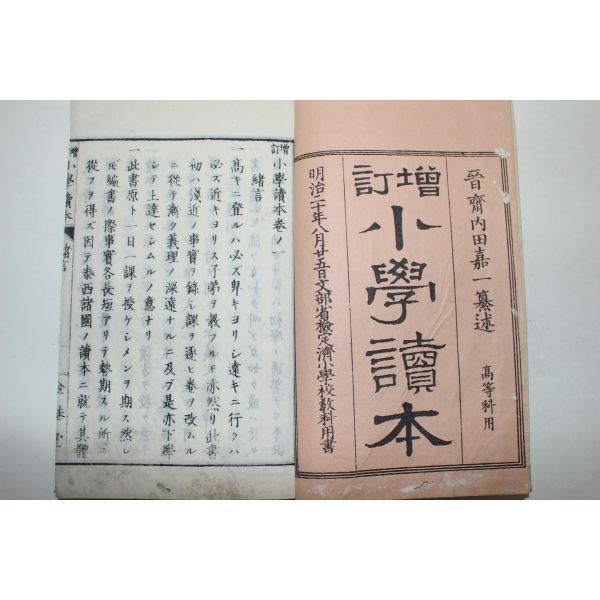 晉齋內田嘉一纂述
高等科用
增訂
小學讀本
明治二十年八月廿五日文部省檢定濟小學校敎科用書
增訂小學讀本卷ノ一
緒言
一高キニ登ルハ必ズ卑キヨリシ遠キニ行クハ
必ズ近キヨリス子弟ヲ敎フルモ亦然リ此書
初ハ淺近ノ事實ヲ錄シ課ヲ逐ヒ卷ヲ改ムル
ニ從テ漸ク義理ノ深遠ナルニ及ブ是亦下學
シテ上達セシムルノ意ナリ
一此書原ト一日一課ヲ授ケシメンヲ期ス然レ
ㇳモ編書ノ際事實各長短アリテ勢期スル所ニ
從フヲ得ズ因テ泰西諸國ノ讀本ニ就テ其體
增訂小學讀本
緒言